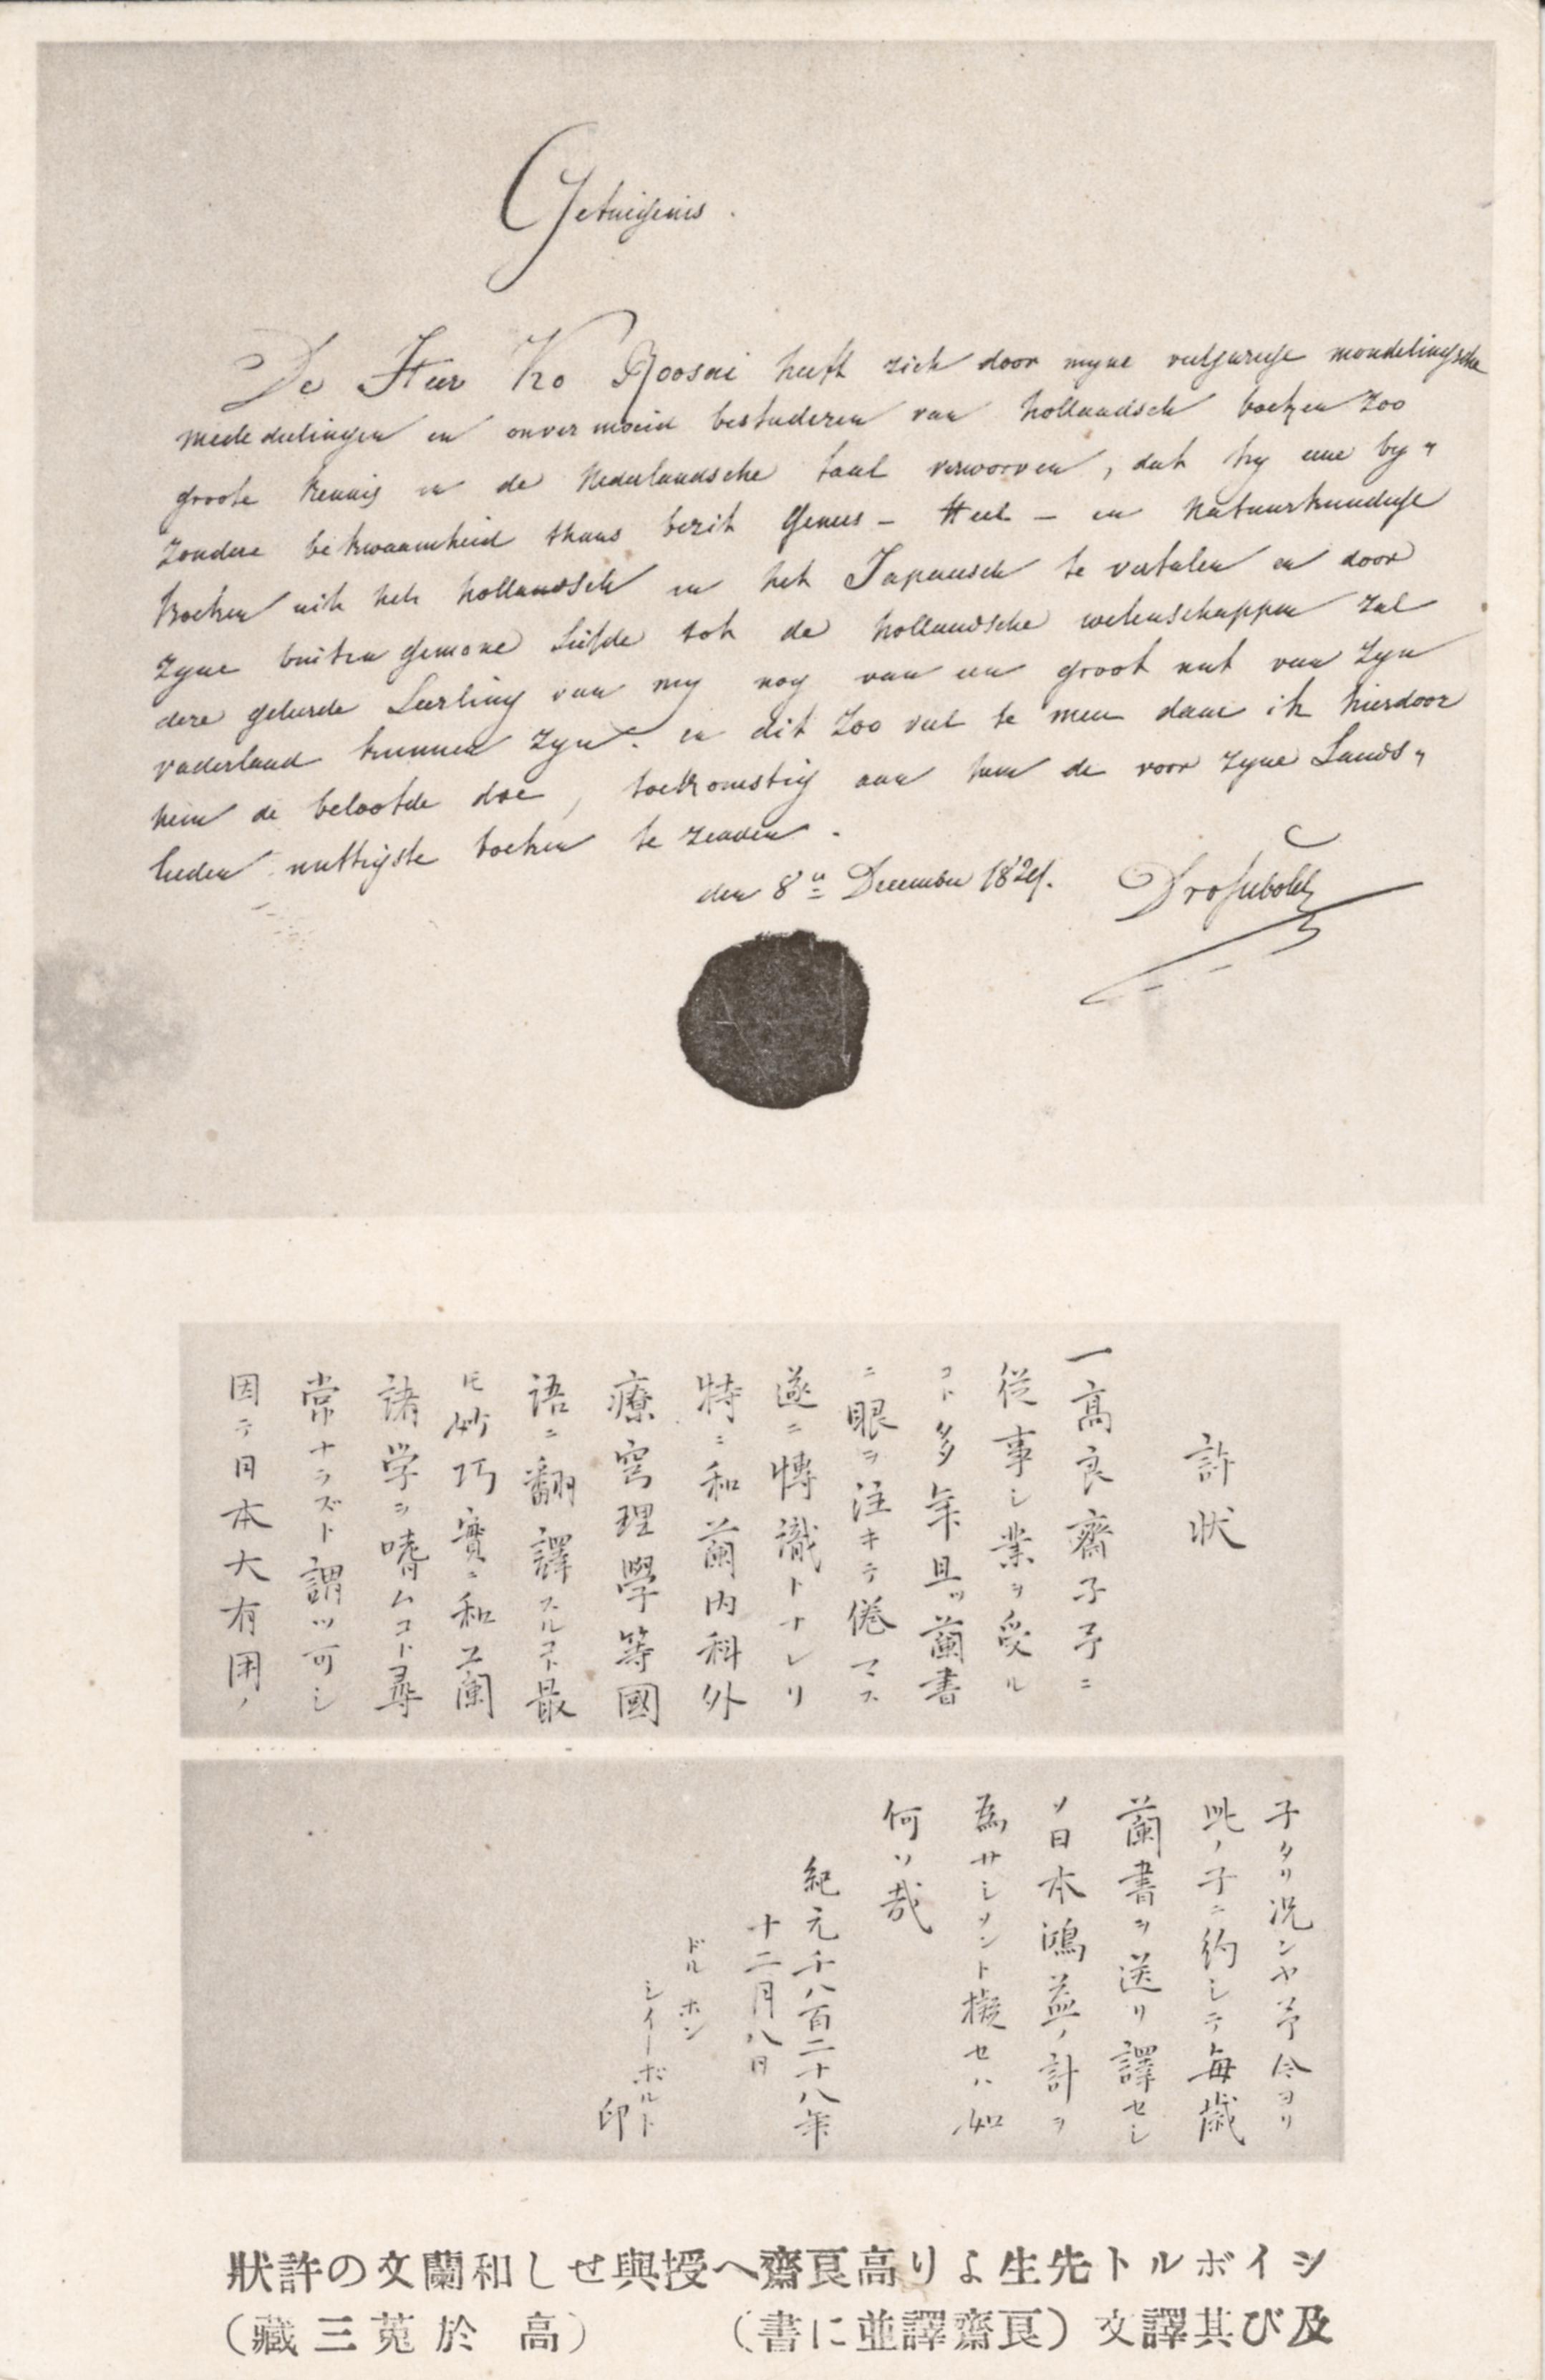 Getuigenis.
De Heer Ko Roosai heeft zich door myne veeljarige mondelingsche
mededeelingen en onvermoeid bestuderen van hollandsch boeken zoo
groote kennis in de Nederlandsche taal verworven, dat hy eene by„
zondere bekwaamheid thans bezit Genees - Heel - en Natuurkundige
boeken uit het hollandsch in het Japansch te vertalen en door
zyne buiten gemone Liefde tot de hollandsche wetenschappen zal
deze geleerde Leerling van my nog van een groot nut van zyn
vaderland kunnen zyn. en dit zoo veel te meer daar ik hierdoor
hem de belofte doe, toekomstig aan hem de voor zyne Lands„
lieden nuttigste boeken te zenden.
den 8n December 182
Dr v Siebold
許状
一高良齋子予ニ
從事シ業ヲ受ル
コト多年且ツ蘭書
ニ眼ヲ注キテ倦マス
遂ニ博識トナレリ
特ニ和蘭内科外
療窮理學等國
語ニ翻譯スルコト最
モ妙巧實ニ和蘭
諸学ヲ嗜ムコト尋
常ナラズト謂ツ可シ
因テ日本大有用ノ
子タリ况ンヤ予今ヨリ
此ノ子ニ約シテ毎歳
蘭書ヲ送リ譯セシ
ソ日本鴻益ノ計ヲ
為サシメント擬セハ如
何ソ哉
紀元千八百二十八年
十二月八日
ドル ホン
シイーボルト
印
シイボルト先生より高良齋へ授與せし和蘭文の許狀
及び其譯文(良齋譯並に書) (高於菟三藏)